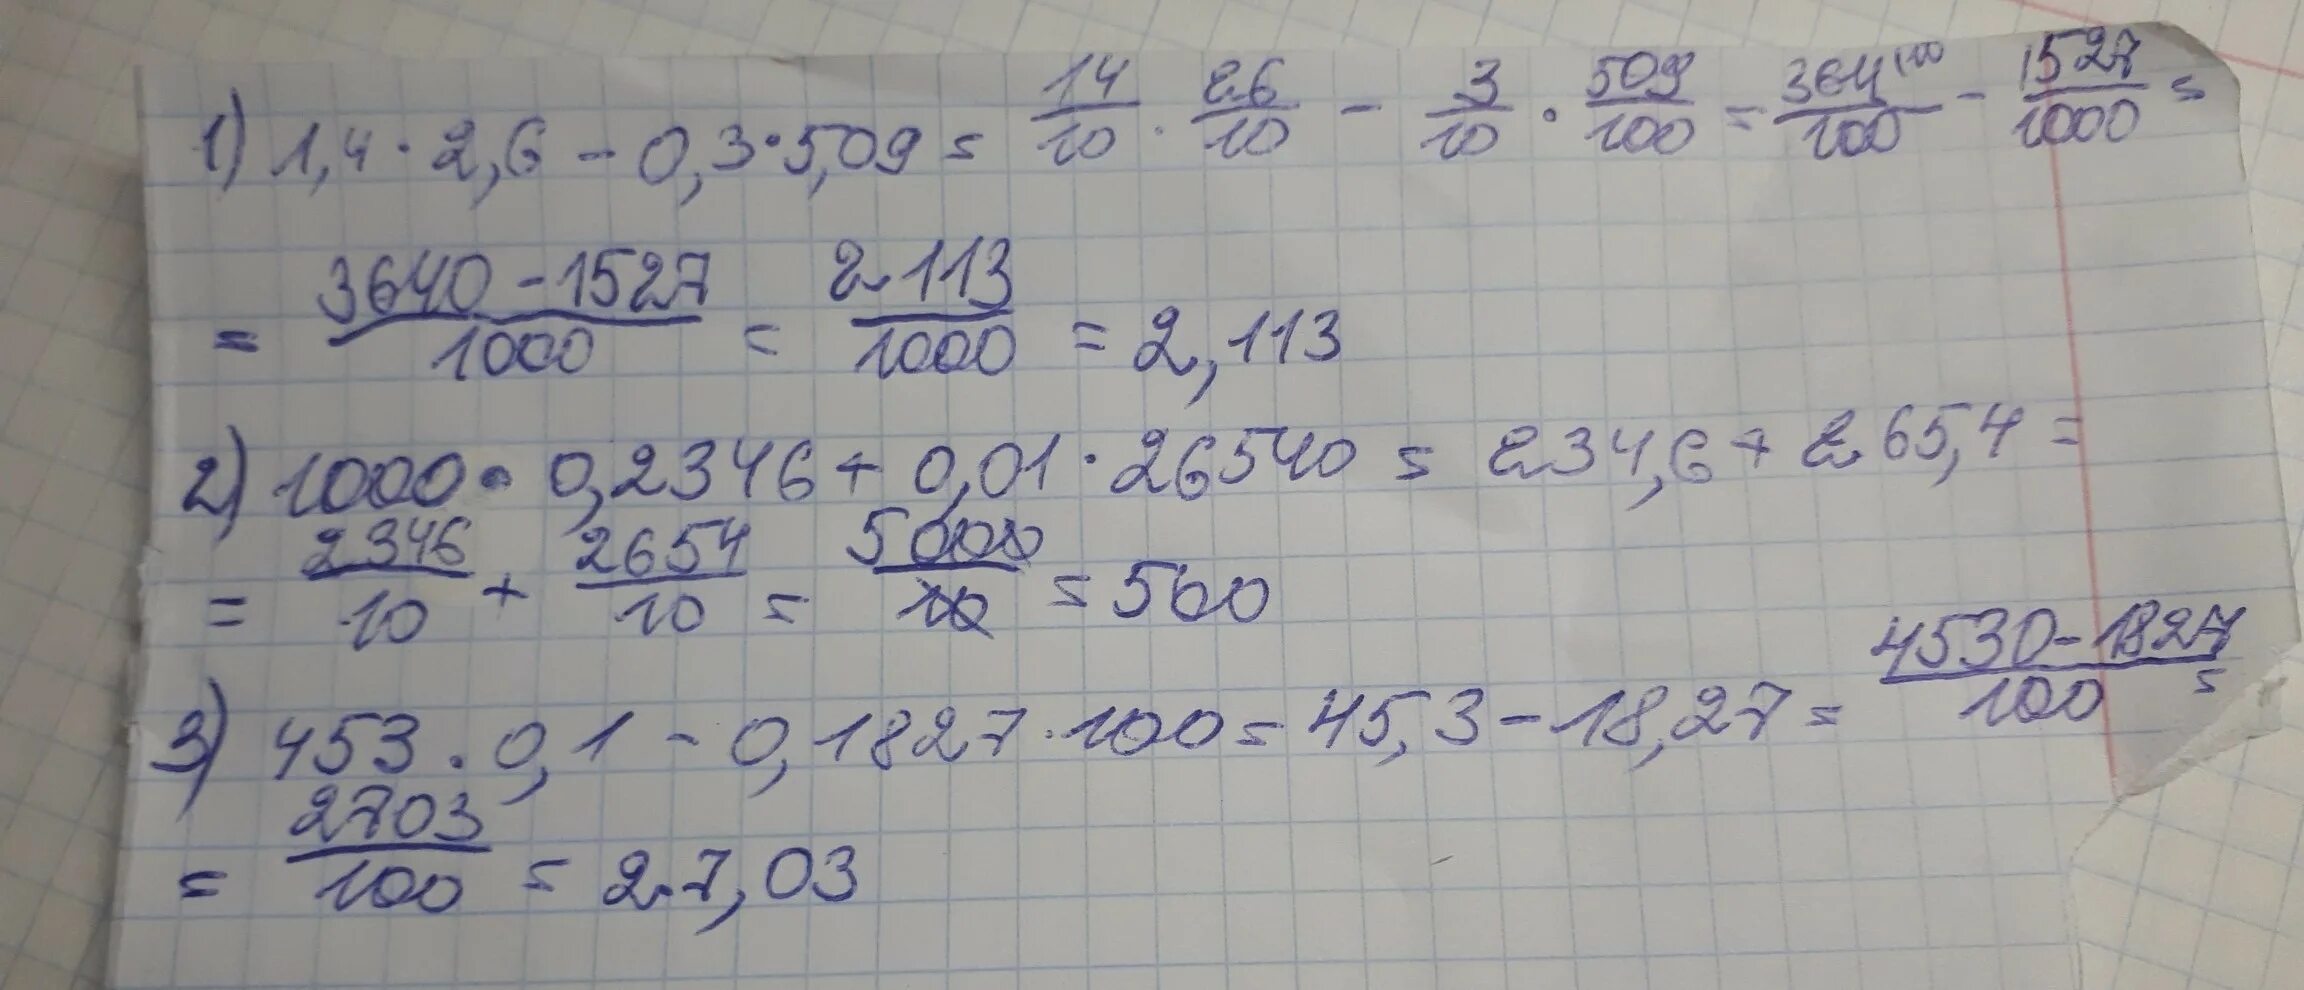 1) 1,4 · 2,6 - 0,3 · 5,09 = 14/10 · 26/10 - 3/10 · 509/100 = 364/100 - 1527/1000 =
= 3640 - 1527/1000 = 2113/1000 = 2,113
2) 1000 · 0,2346 + 0,01 · 26540 = 234,6 + 265,4 =
= 2346/10 + 2654/10 = 5000/10 = 500
3) 453 · 0,1 - 0,1827 · 100 = 45,3 - 18,27 = 4530 - 1827/100 =
= 2703/100 = 27,03